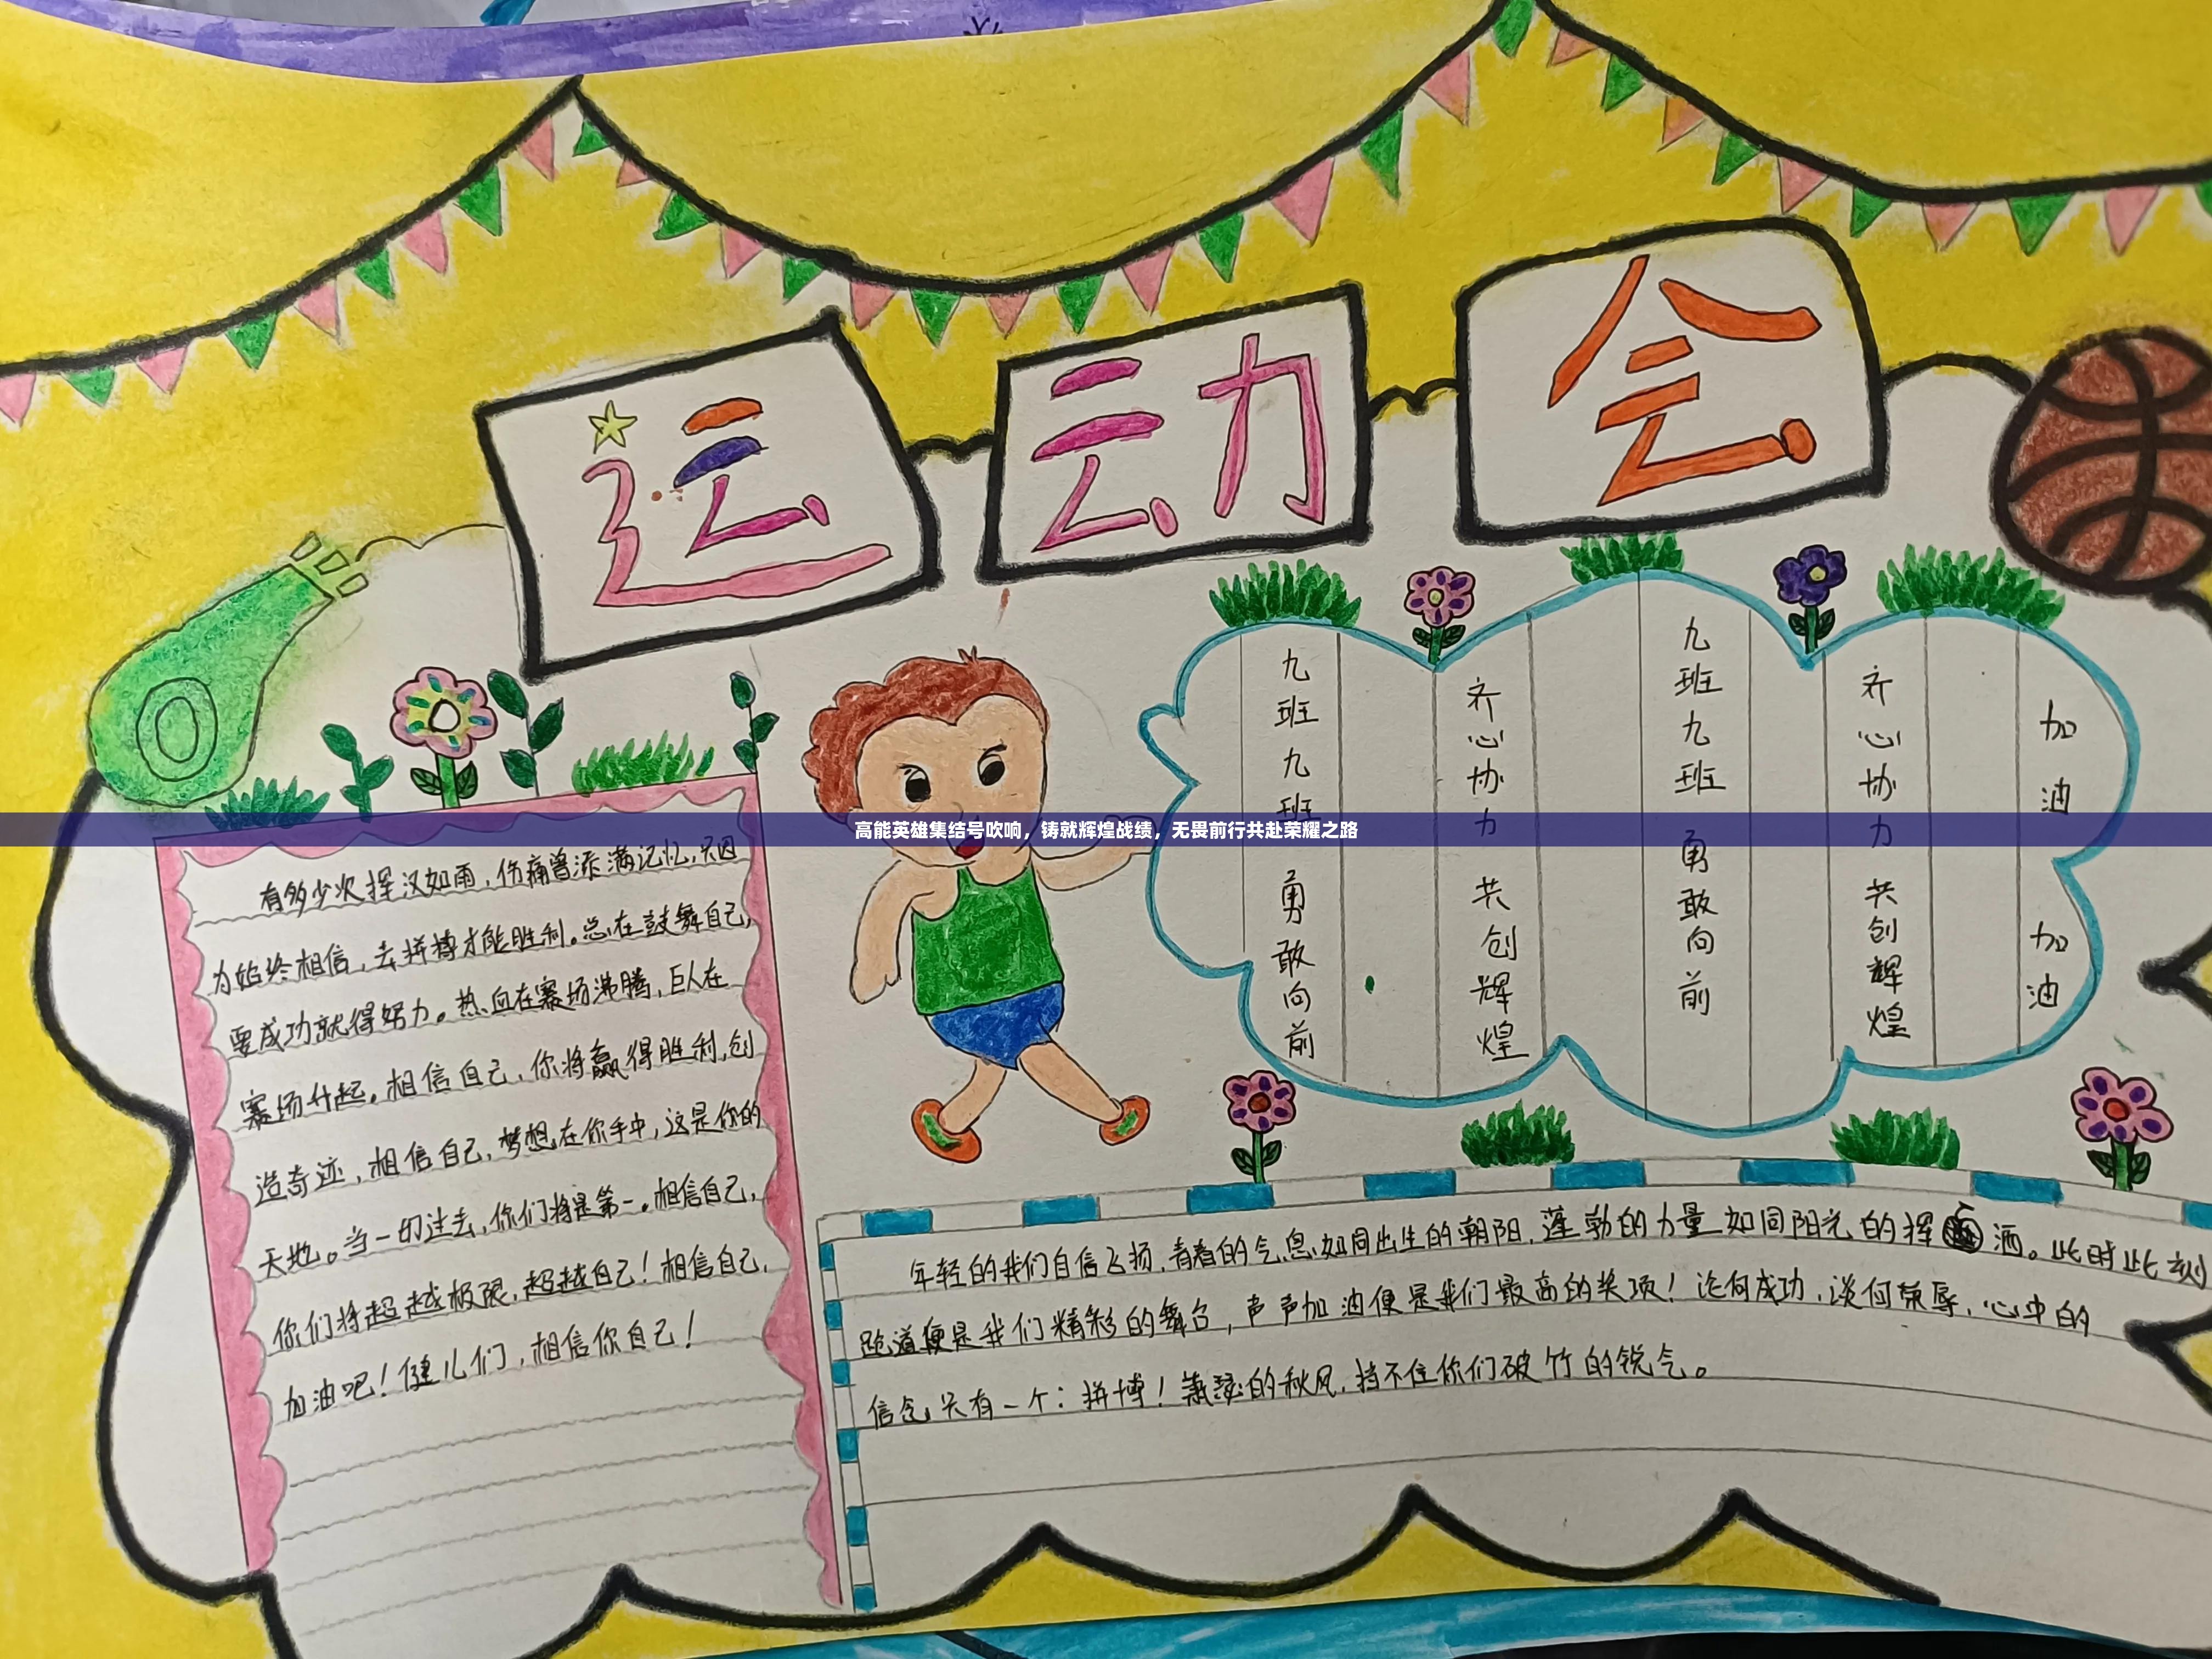 运动会
九班九班 勇敢向前
齐心协力 共创辉煌
九班九班 勇敢向前
齐心协力 共创辉煌
加油 加油
高能英雄集结号吹响，铸就辉煌战绩，无畏前行共赴荣耀之路
有多少次挥汉如雨，伤痛曾添满记忆，只因
为始终相信，去拼搏才能胜利。总在鼓舞自己，
要成功就得努力。热血在赛场沸腾，巨人在
赛场升起。相信自己，你将赢得胜利，创
造奇迹，相信自己，梦想在你手中，这是你的
天地。当一切过去，你们将是第一。相信自己，
你们将超越极限，超越自己！相信自己，
加油吧！健儿们，相信你自己！
年轻的我们自信飞扬，青春的气息如同出生的朝阳，蓬勃的力量如同阳光的挥洒。此时此刻
跑道便是我们精彩的舞台，声声加油便是我们最高的奖项！论何成功，谈何荣辱，心中的
信念只有一个：拼搏！萧瑟的秋风，挡不住你们破竹的锐气。